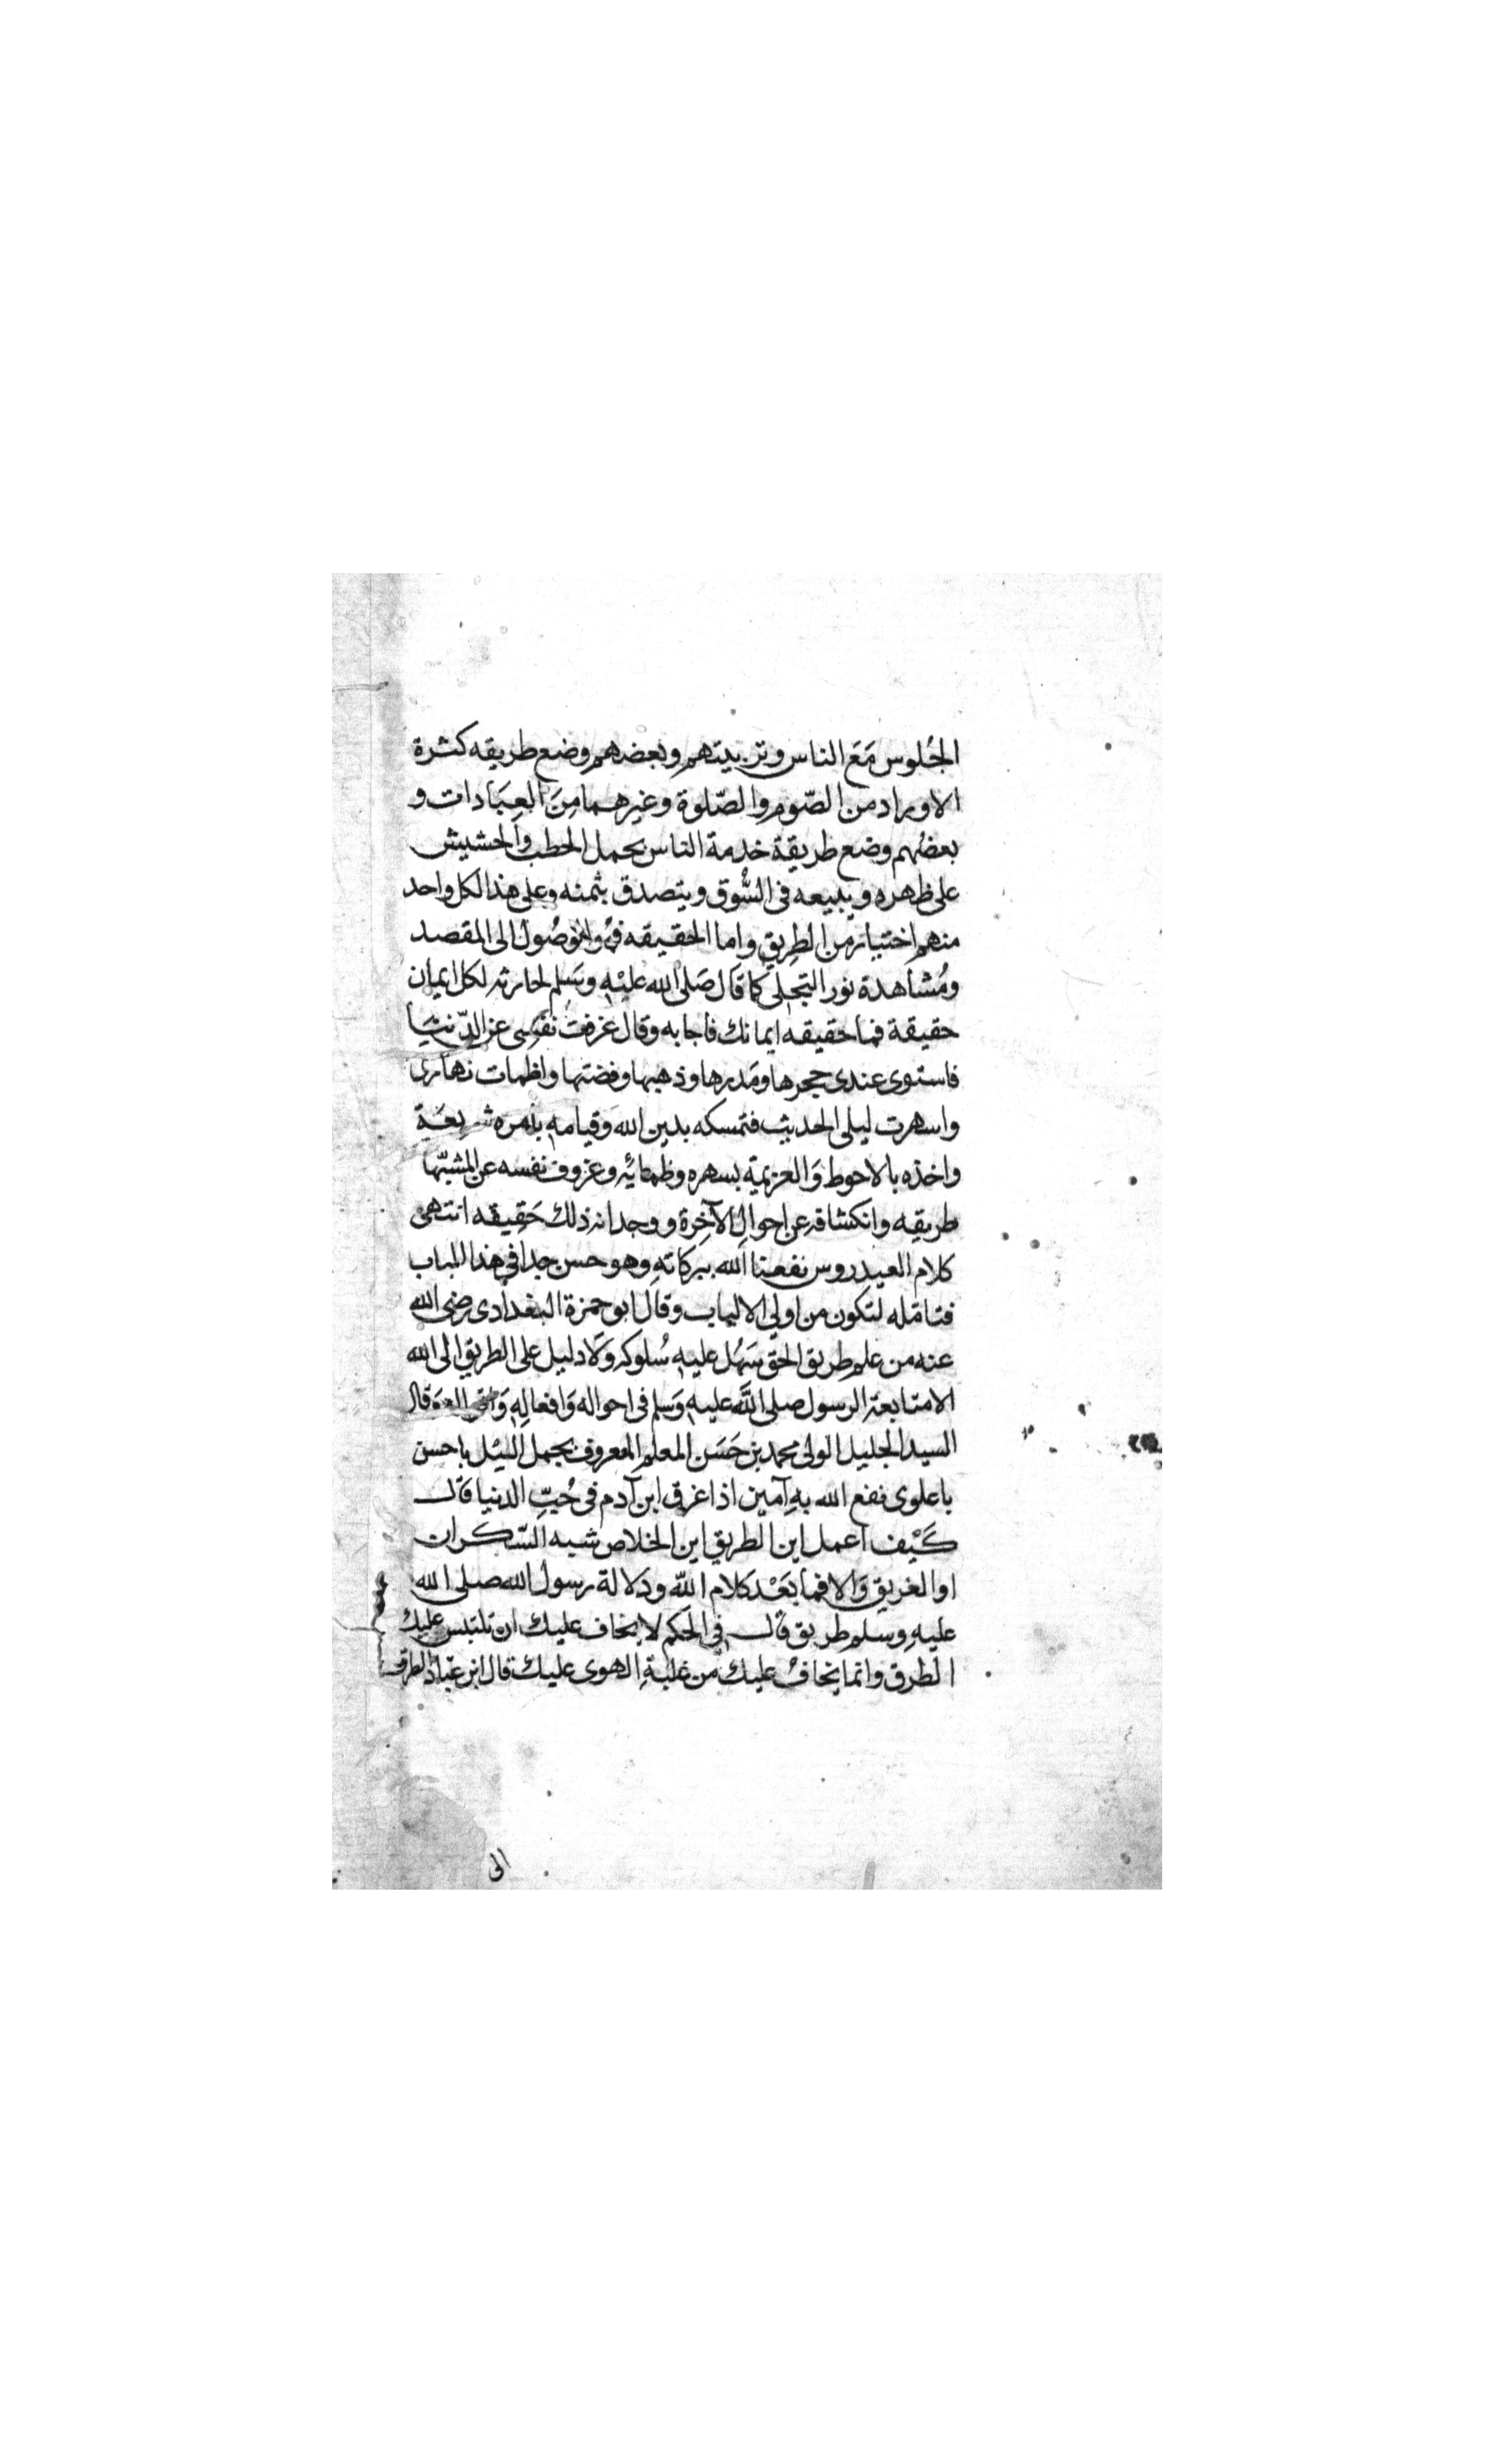 الجُلوس مَعَ الناس وتربيتهم وبعضهم وضع طريقه كثرة
الاوراد من الصّوم والصّلوة وغيرهما مِنَ العِبَادات و
بعضُهم وضع طريقة خدمة الناس بحمل الحطب والحشيش
على ظهره ويبيعه فى السُّوق ويتصدق بثمنه وعلى هذا لكل واحد
منهم اختيار من الطريق واما الحقيقه فهُو الوُصُول الى المقصد
ومُشاهدة نور التجلى كما قَال صَلى الله عليْهِ وسَلم لحارثه لكل ايمان
حقيقة فما حقيقه ايمانك فاجابه وقال عزفت نفسِى عن الدّنيَا
فاستوى عندى حجرها ومَدرها وذهبها وفضتها واظمات نهارى
واسهرت ليلى الحديث فتمسكه بدين الله وقيامه بامره شريعَة
واخذه بالاحوط وَالعزيمة بسهره وظمائه وعزوف نفسه عن المشبّها
طريقه وانكشافه عن احوالِ الآخِرة ووجدانه ذلك حَقِيقه انتهىٰ
كلام العيدروس نفعنا الله ببركاتهِ وهو حسن جدا في هذا الباب
فتامّله لتكون من اولي الالباب وقال ابو حمزة البغدادى رضى الله
عنه من علم طريق الحق سَهُل عليهِ سُلوكه وَلا دليل على الطريق الى الله
الا متابعة الرسول صلى اللَّه عليهِ وَسلم فى احواله وَافعالِهِ وَقال
السيد الجليل الولى محمد بن حَسَن المعلم المعروف بجمل الليْل باحسن
باعلوى نفع الله بهِ آمين اذا غرق ابن آدم فى حُبِّ الدنيا قال
كَيْف اعمل اين الطريق اين الخلاص شبه السّكران
او الغريق وَالا فما بَعْد كلام اللّه ودلالة رسول الله صلى الله
عليهِ وسلم طريق قال في الحكم لا يخاف عليك ان تلتبس عليك
الطرق وانما يخافُ عليك من غلبةِ الهوى عليك قال ابن عبّاد الطرق
الى